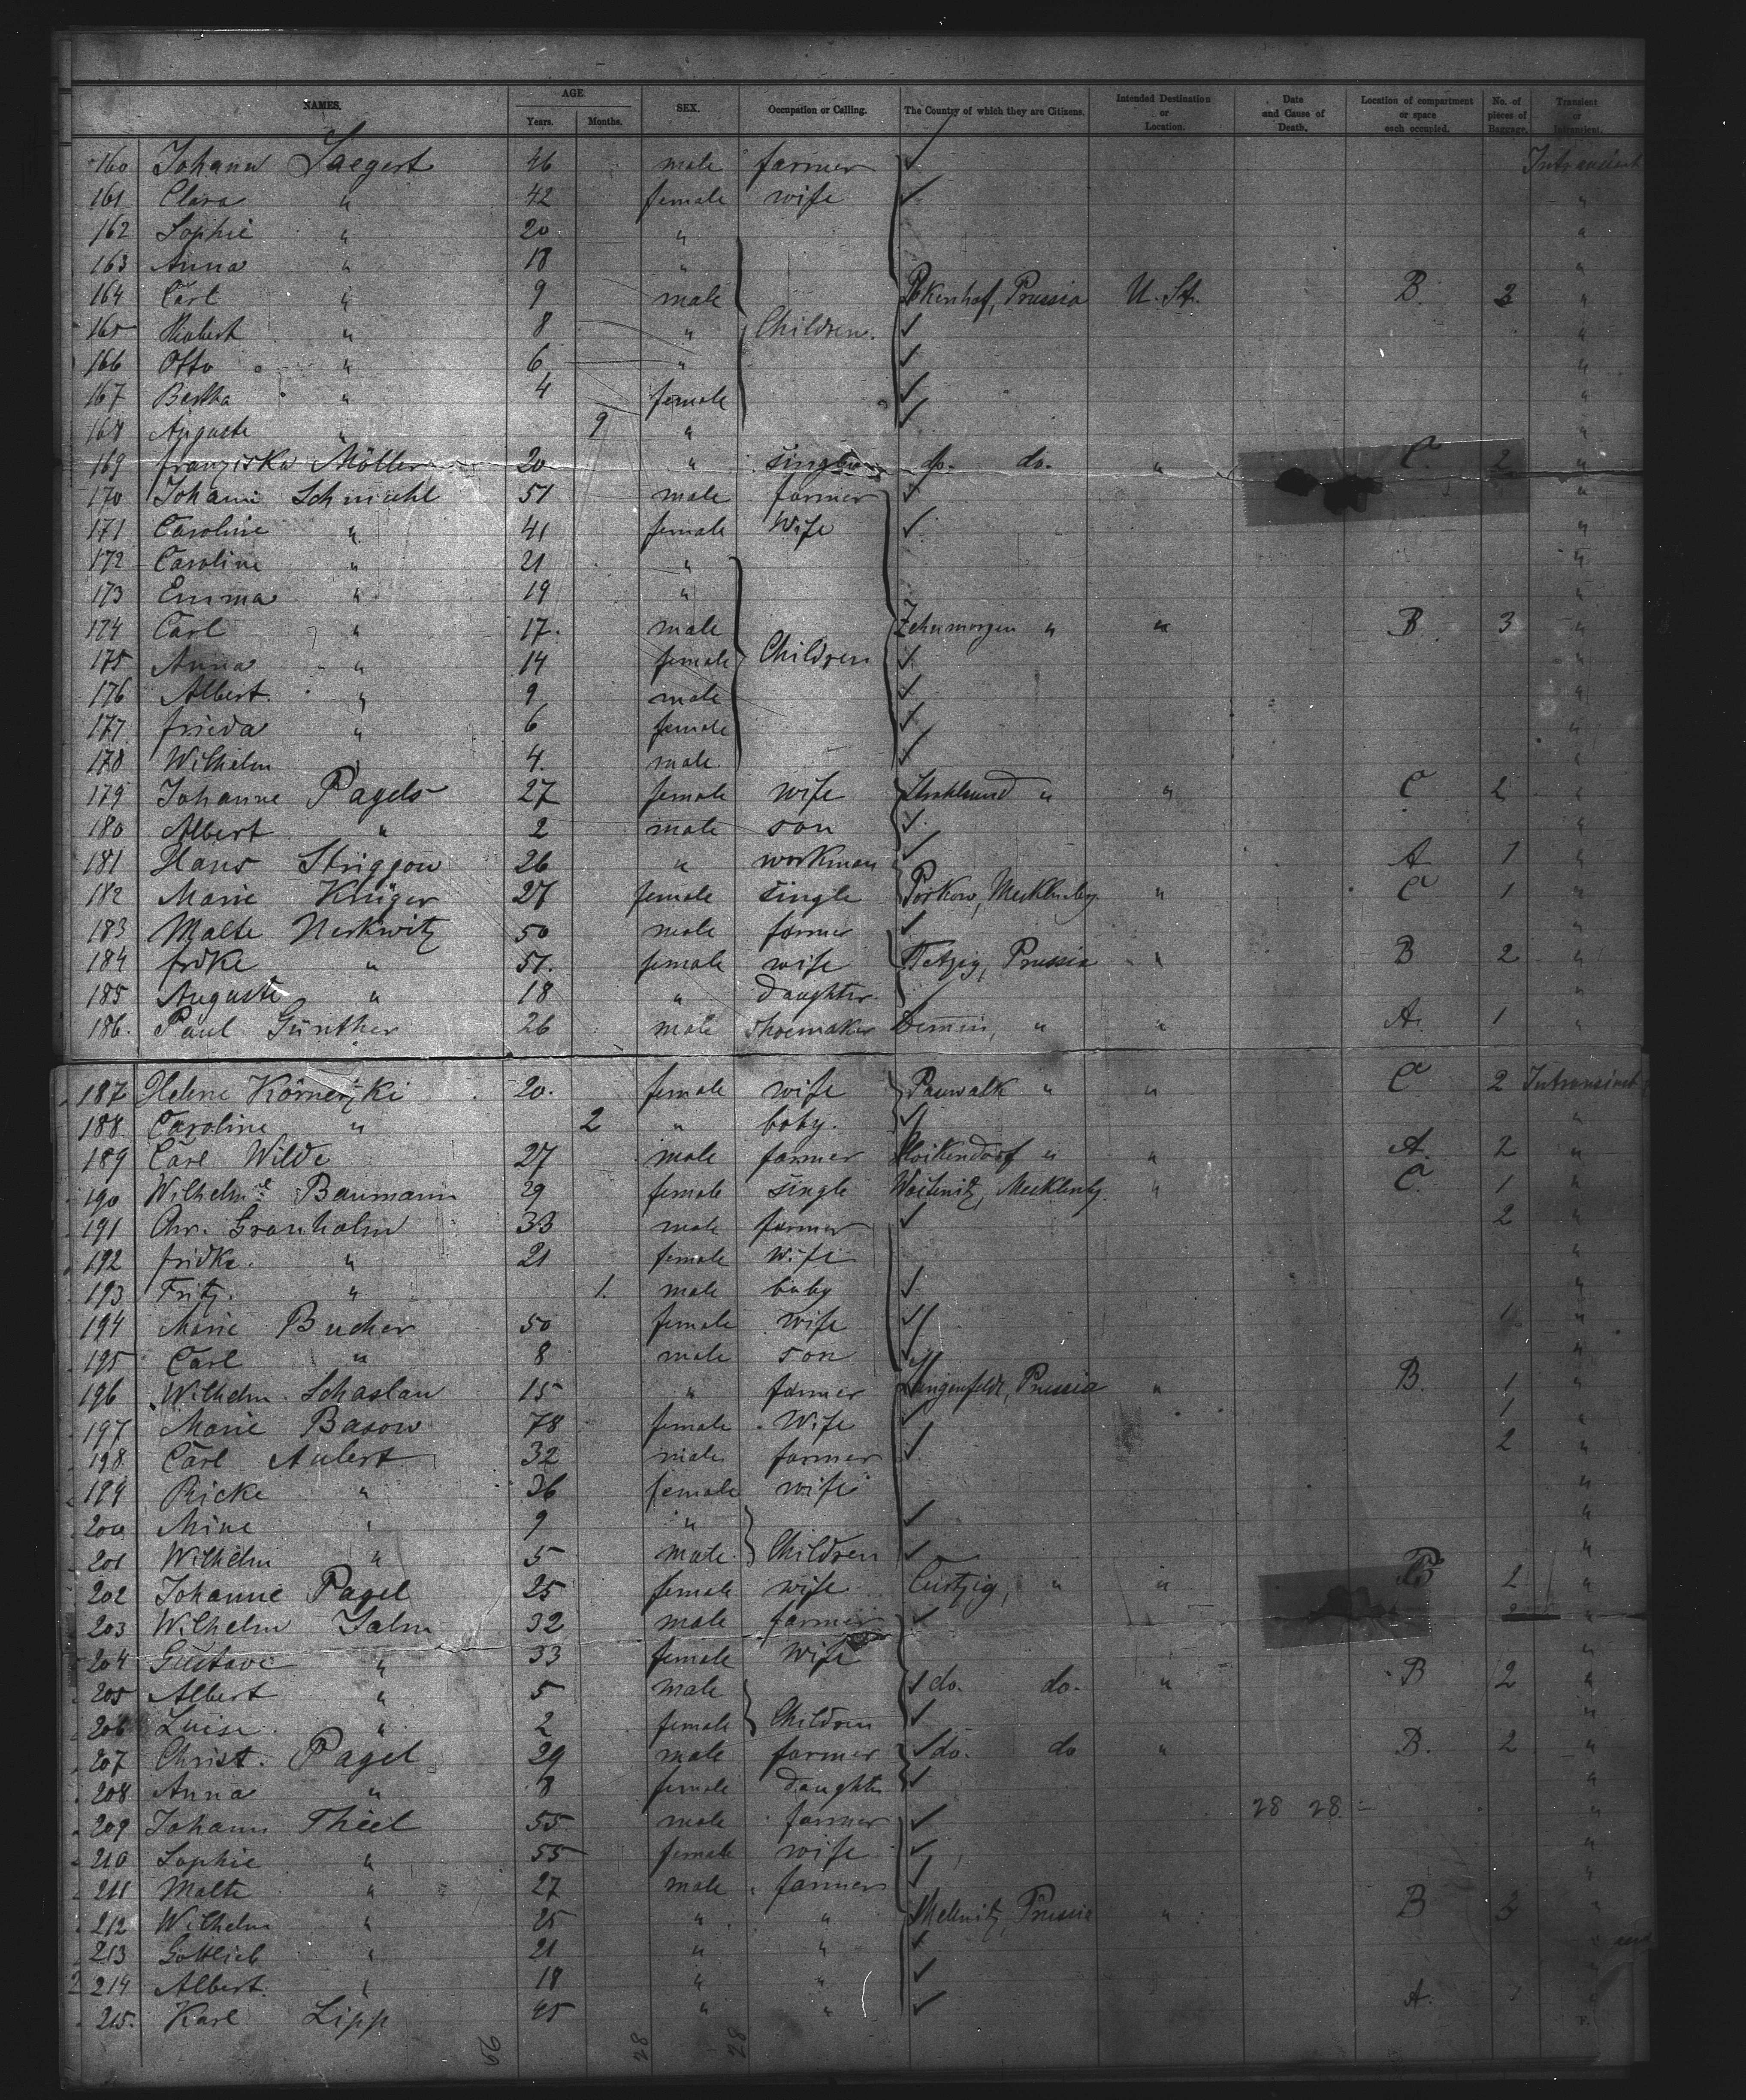 NAMES. AGE Years. Months. SEX. Occupation or Calling. The Country of which they are Citizens. Intended Destination or Location. Date and Cause of Death. Location of compartment or space each occupied. No. of pieces of Baggage. Transient or Intransient.
160 Johann Saegert 46 male farmer ✓
161 Clara " 42 female wife ✓ "
162 Sophie " 20 " "
163 Anna " 18 " "
164 Carl " 9 male Prussia U. St. B. "
165 Robert " 8 " Children. ✓ "
166 Otto " 6 " ✓ "
167 Bertha " 4 female ✓ "
168 Auguste " 9 " ✓ "
169 Franziska Möller 20 " single do. do. " C. 2 "
170 Johann Schmuhl 51 male farmer ✓ "
171 Caroline " 41 female Wife ✓ "
172 Caroline " 21 " "
173 Emma " 19 " "
174 Carl " 17. male Zehnmorgen " " B 3 "
175 Anna " 14 female Children ✓ "
176 Albert " 9 male ✓ "
177 frieda " 6 female ✓ "
178 Wilhelm " 4. male ✓ "
179 Johanne Pagels 27 female wife Stralsund " " C 2 "
180 Albert " 2 male son ✓ "
181 Hans Striggow 26 " workman ✓ A 1 "
182 Marie Krüger 27 female single " C 1 "
183 Malte Nerkwitz 50 male farmer ✓ "
184 frdke " 51. female wife Prussia " B 2 "
185 Auguste " 18 " daughter "
186. Paul Günther 26 male shoemaker Demmin, " " A. 1 "
187 Helene 20. female wife " " C 2
188 Caroline " 2 " baby. ✓ "
189 Carl Wilde 27 male farmer " " A. 2 "
190 Wilhelme Baumann 29 female single " C. 1 "
191 Chr. Granholm 33 male farmer ✓ 2 "
192 fridke. " 21 female Wife "
193 Fritz. " 1. male baby ✓ "
194 Marie Bucher 50 female wife ✓ 1 "
195 Carl " 8 male son ✓ "
196 Wilhelm Schaslau 15 " farmer Langenfelde, Prussia " B. 1 "
197 Marie Basow 78 female Wife ✓ 1 "
198 Carl Aulert 32 male farmer ✓ 2 "
199 Ricke " 36 female wife "
200 Mine " 9 " ✓ "
201 Wilhelm " 5 male Children ✓ "
202 Johanne Pagel 25 female wife " " B 2 "
203 Wilhelm 32 male farmer ✓ "
204 Gustave " 33 female Wife "
205 Albert " 5 male ✓ do. do. " B 2 "
206 Luise " 2 female Children ✓ "
207 Christ. Pagel 29 male farmer ✓ do. do " B. 2 "
208 Anna " 8 female daughter ✓ "
28 28
209 Johann Theel 55 male farmer ✓ "
210 Sophie " 55 female wife ✓ "
211 Malte " 27 male farmer ✓ "
212 Wilhelm " 25 " " Mellnitz, Prussia " B 3 "
213 Gottlieb " 21 " " ✓
214 Albert " 18 " " ✓ "
215. Karl Lipp 45 " " ✓ A. "
29 28 28